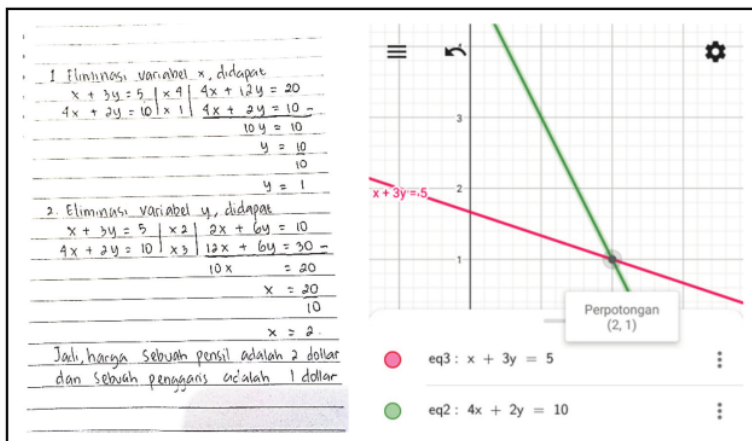 1 Eliminasi variabel x, didapat
x + 3y = 5 | x 4 | 4x + 12y = 20
4x + 2y = 10 | x 1 | 4x + 2y = 10 -
10y = 10
y = 10
10
y = 1
2. Eliminasi variabel y, didapat
x + 3y = 5 | x2 | 2x + 6y = 10
4x + 2y = 10 | x3 | 12x + 6y = 30 -
10x = 20
x = 20
10
x = 2.
Jadi, harga sebuah pensil adalah 2 dollar
dan sebuah penggaris adalah 1 dollar
3
x + 3y = 5
2
1
Perpotongan
(2, 1)
eq3 : x + 3y = 5
eq2 : 4x + 2y = 10